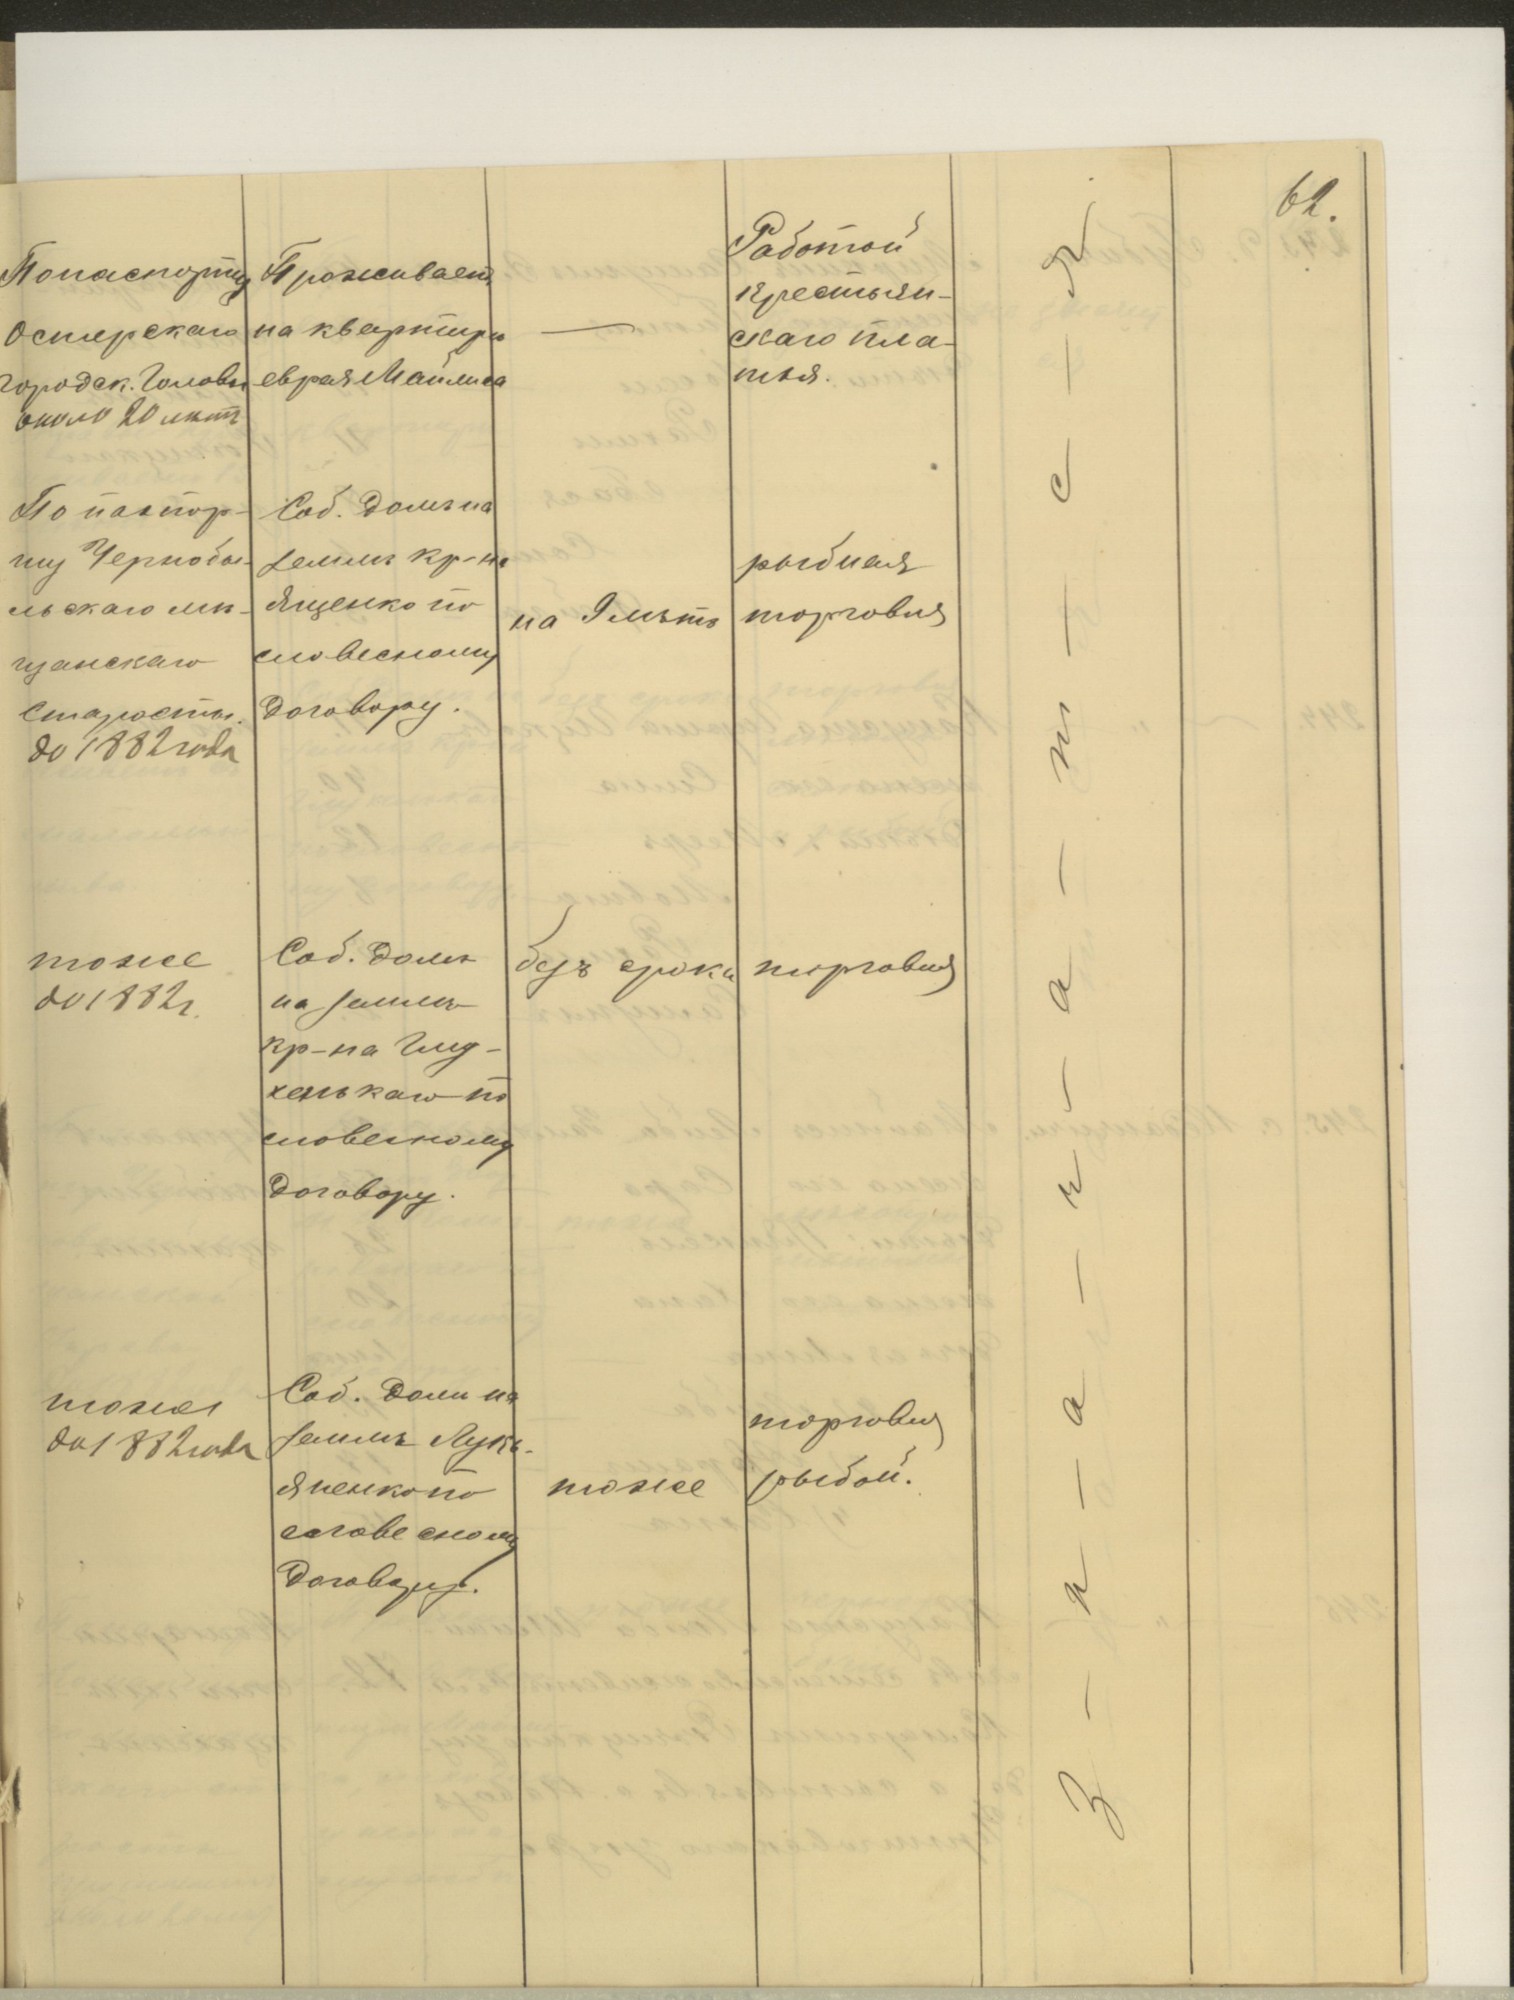 62.
По паспорту
Остерскаго
городск. Головы
около 20 летъ
Проживаетъ
на квартире
еврея Майлиса
—
Работой
крестьян-
скаго пла-
тья.
По паспор-
ту Чернобы-
льскаго ме-
щанскаго
Старосты.
до 1882 года
Соб. домъ на
земле кр-на
Ященко по
словесному
договору.
на 9 летъ
рыбная
торговля
тоже
до 1882 г.
Соб. домъ
на земле
кр-на Глу-
хенькаго по
словесному
договору.
безъ срока
торговля
тоже
до 1882 года
Соб. домъ на
земле Лукь-
яненко по
словесному
договору.
тоже
торговля
рыбой.
З-а-н-и-м-а-е-т-с-я.